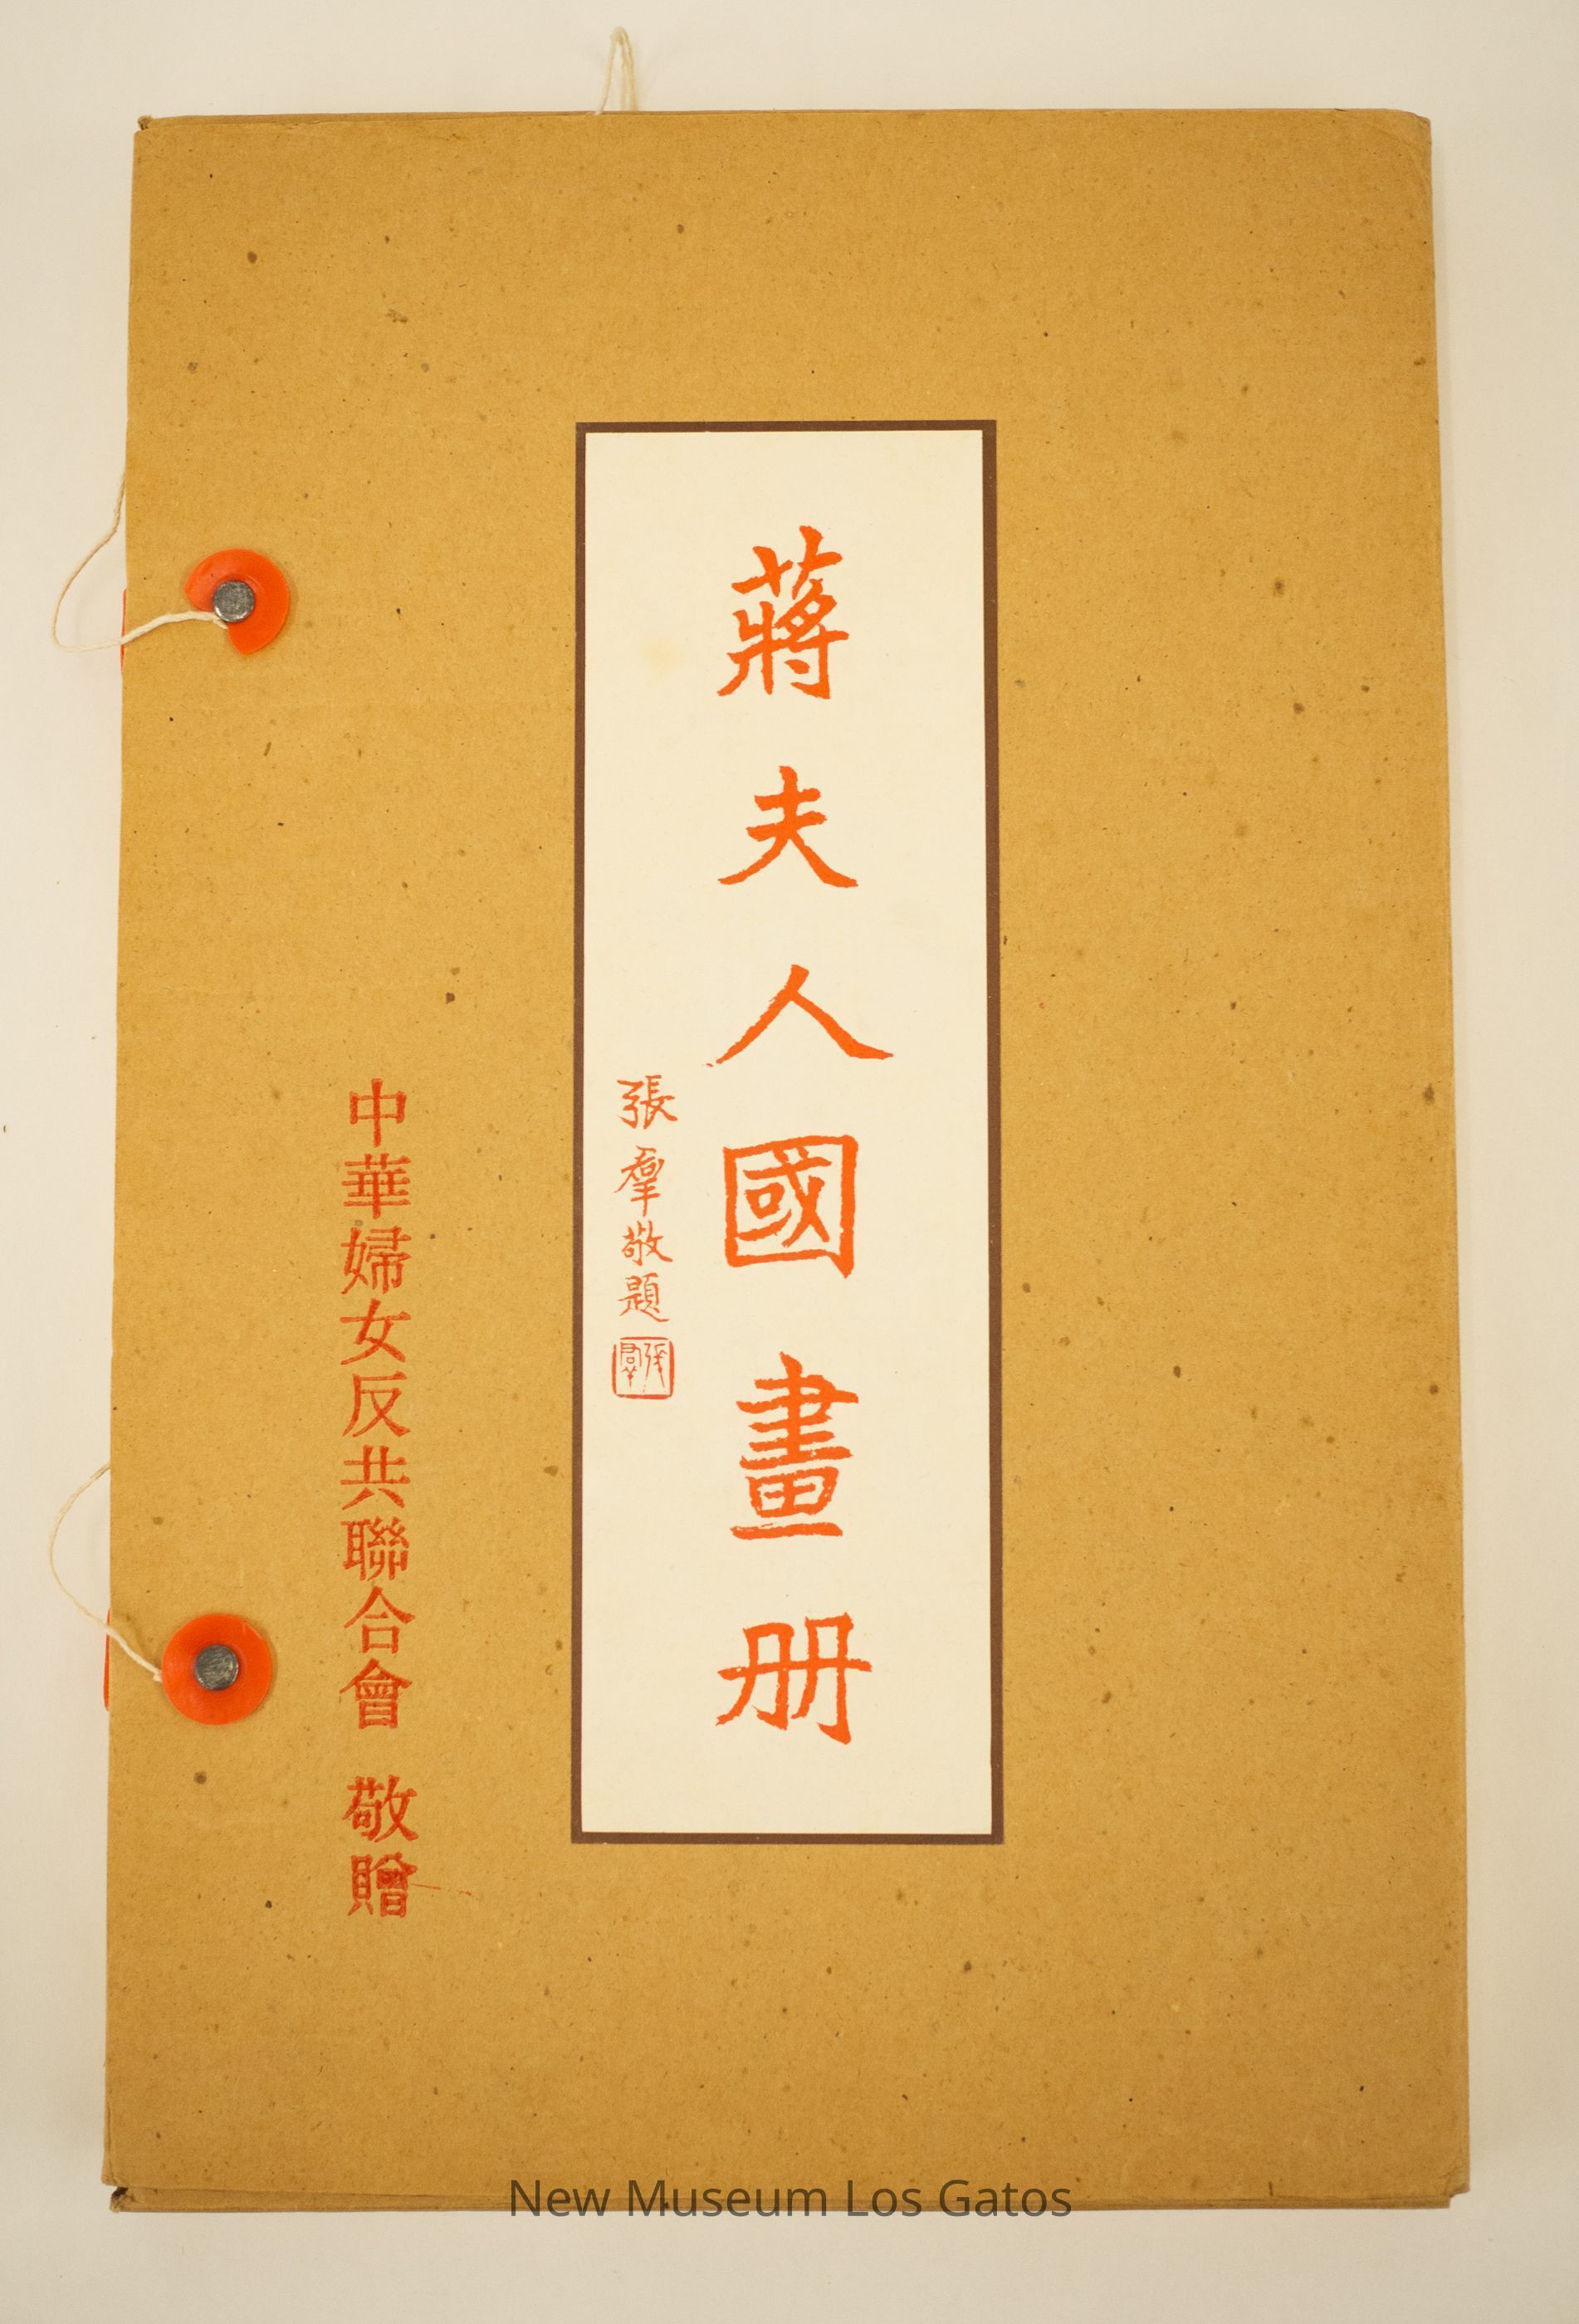 蔣夫人國畫册
張羣敬題
張羣
中華婦女反共聯合會 敬贈
New Museum Los Gatos